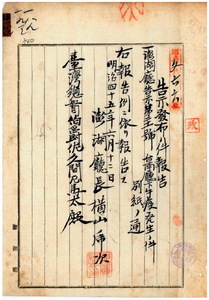 告示發布ノ件報告
一澎湖廳告示第三號 台南廳下牛疫発生ノ件
別紙ノ通
右報告例ニ依リ報告ス
明治四十五年六月十二日
澎湖廳長 横山虎次
臺灣總督伯爵佐久間左馬太殿